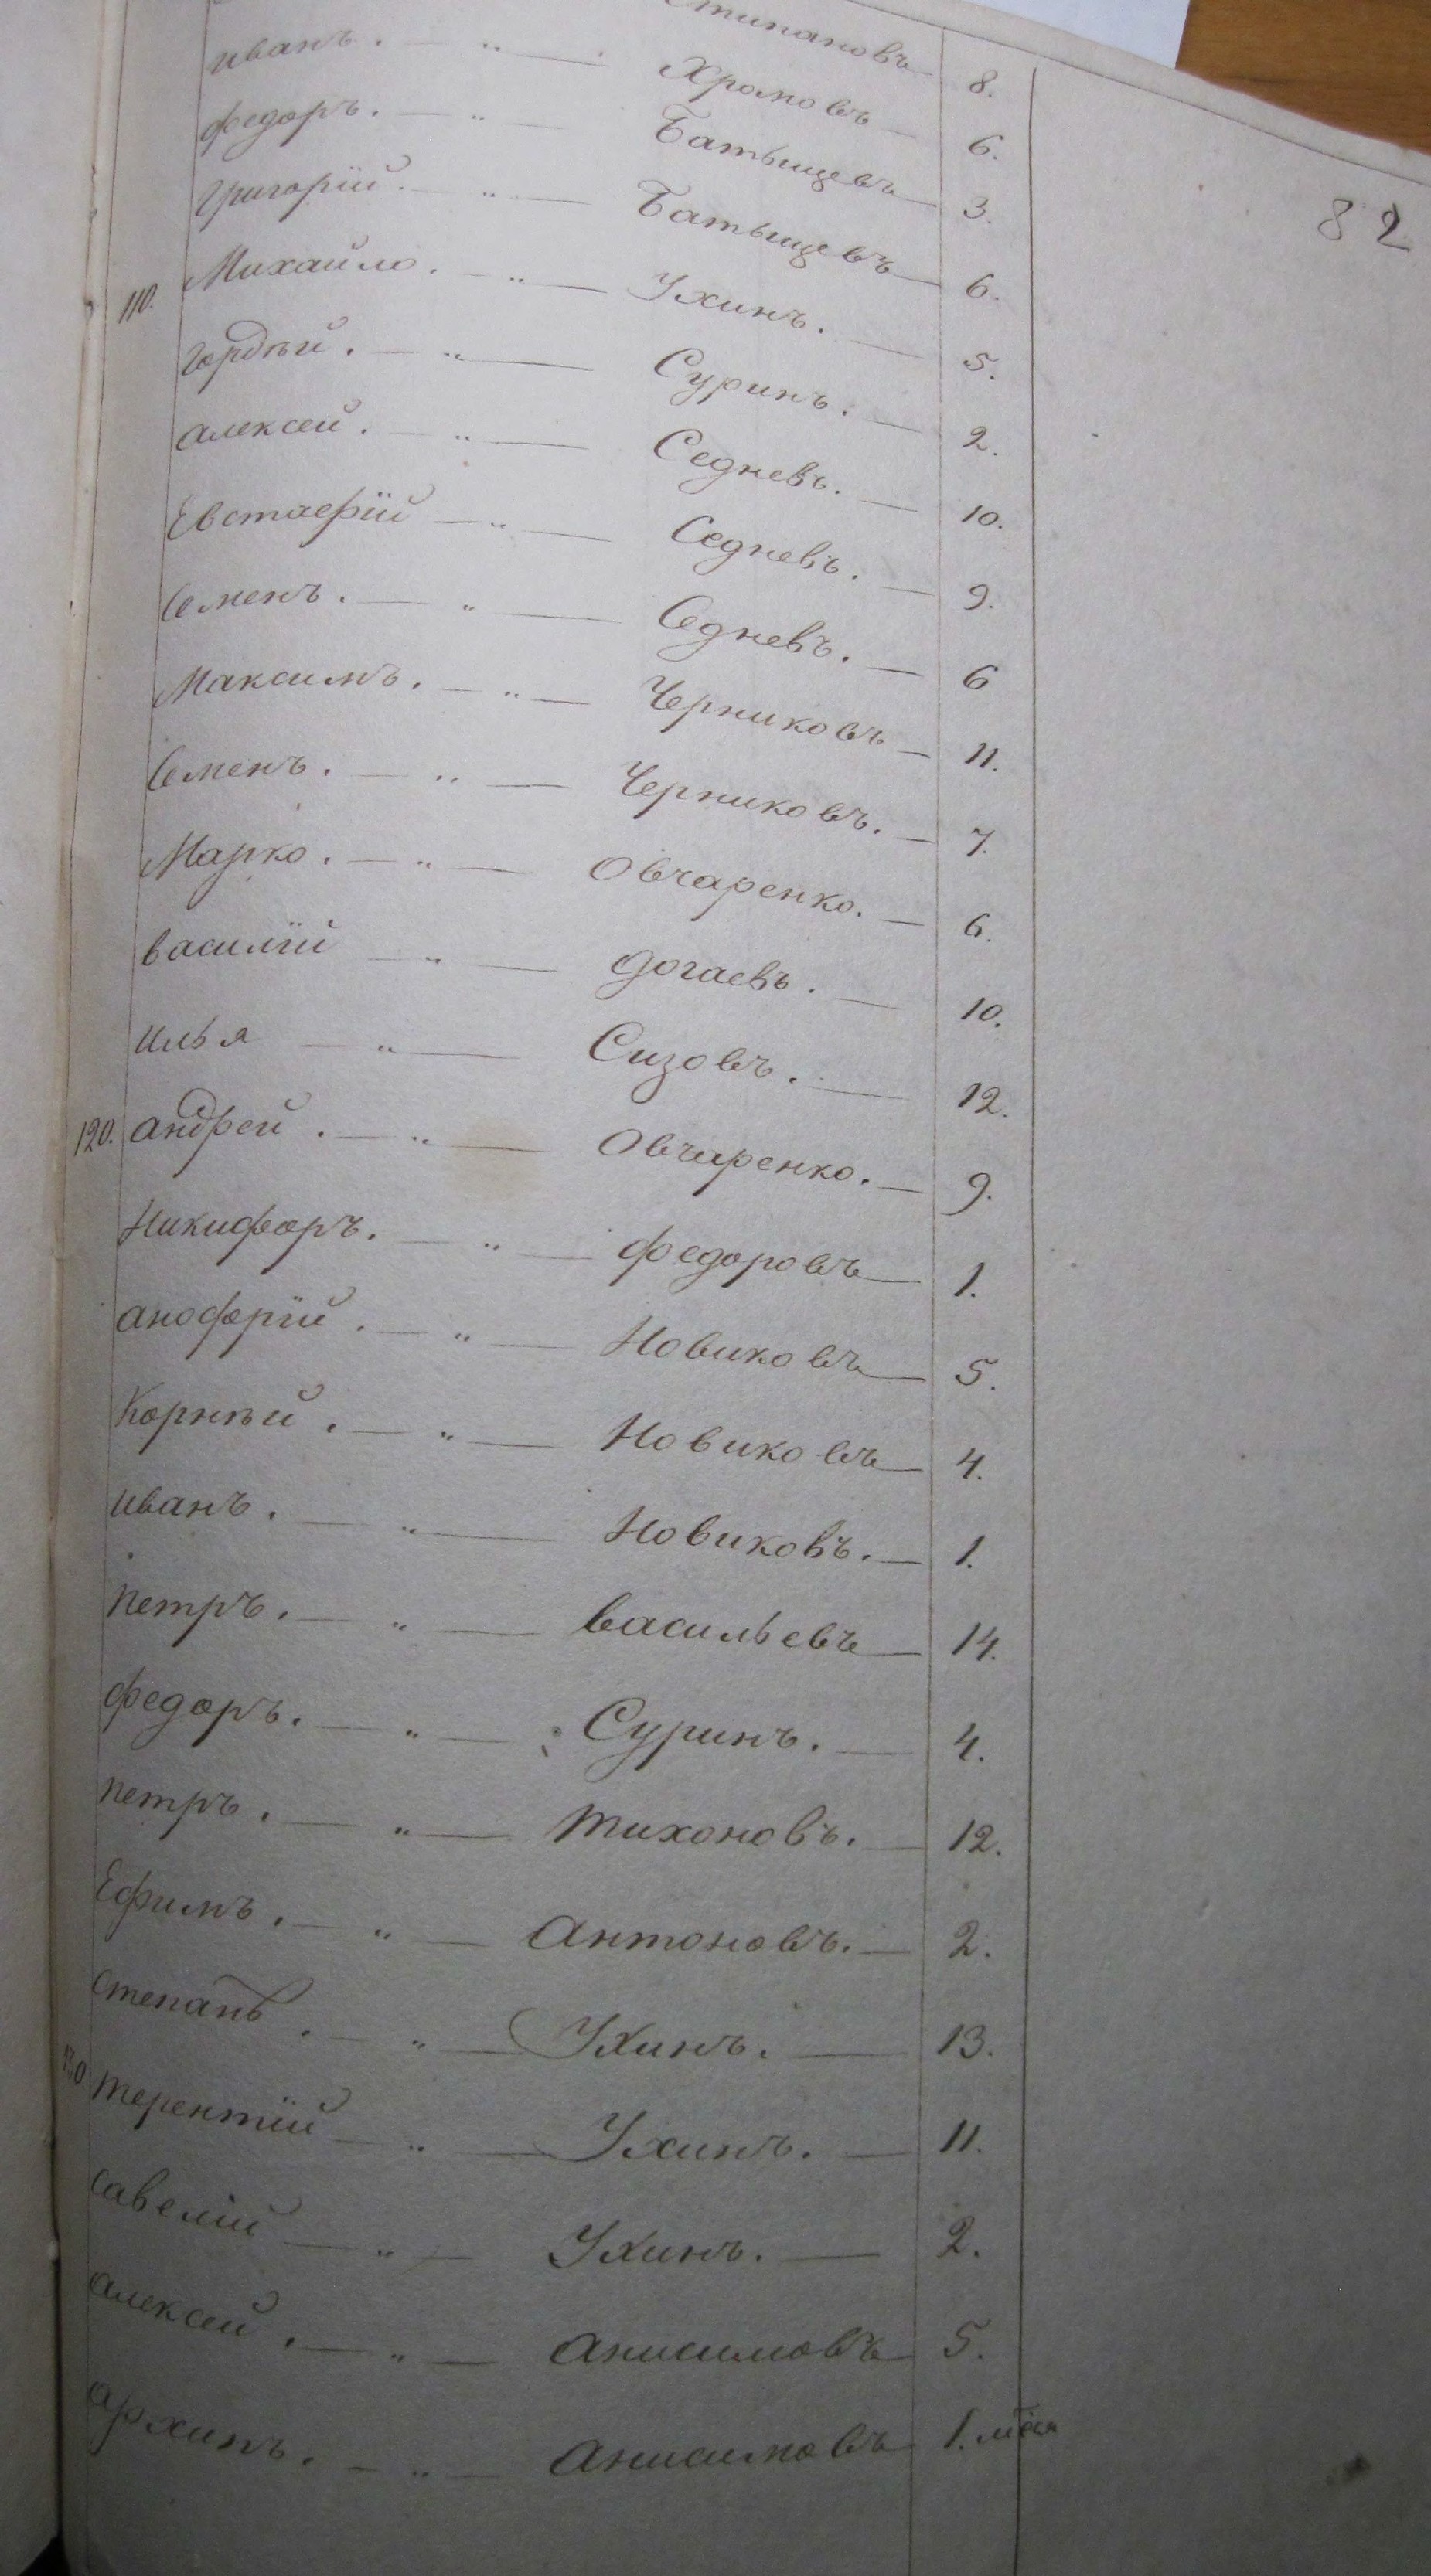 Стипановъ — 8.
иванъ. — " — Хромовъ — 6.
82
федоръ. — " — Батыщевъ — 3.
григорій. — " — Батыщевъ — 6.
110. Михайло. — " — Ухинъ. — 5.
гордѣй. — " — Суринъ. — 2.
алексей. — " — Седневъ. — 10.
Евстафій — " — Седневъ. — 9.
Семенъ. — " — Седневъ. — 6
Максимъ. — " — Черниковъ — 11.
Семенъ. — " — Черниковъ. — 7.
Марко. — " — Овчаренко. — 6.
василій — " — догаевъ. — 10.
илья — " — Сизовъ. — 12.
120. андрей. — " — Овчаренко. — 9.
Никифоръ. — " — федоровъ — 1.
аноферій. — " — Новиковъ — 5.
Корнѣй. — " — Новиковъ — 4.
иванъ. — " — Новиковъ. — 1.
петръ. — " — васильевъ — 14.
федоръ. — " — Суринъ. — 4.
петръ. — " — тихоновъ. — 12.
Ефимъ. — " — антоновъ. — 2.
степанъ. — " — Ухинъ. — 13.
130 терентій — " — Ухинъ. — 11.
савелій — " — Ухинъ. — 2.
алексей. — " — анисимовъ 5.
архипъ. — " — анисимовъ 1.